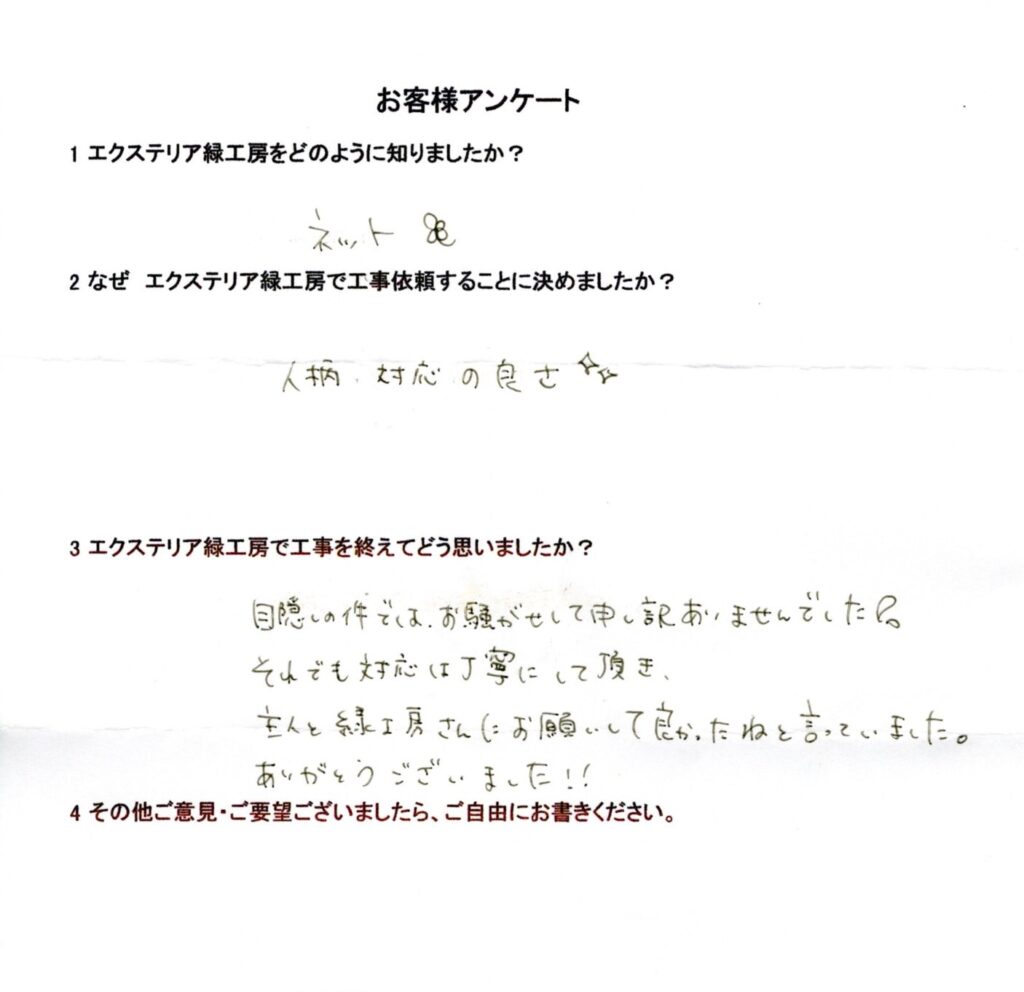 お客様アンケート
1 エクステリア緑工房をどのように知りましたか？
ネット
2 なぜ　エクステリア緑工房で工事依頼することに決めましたか？
人柄、対応の良さ
3 エクステリア緑工房で工事を終えてどう思いましたか？
目隠しの件では、お騒がせして申し訳ありませんでした
それでも対応は丁寧にして頂き、
主人と緑工房さんにお願いして良かったねと言っていました。
ありがとうございました!!
4 その他ご意見・ご要望ございましたら、ご自由にお書きください。